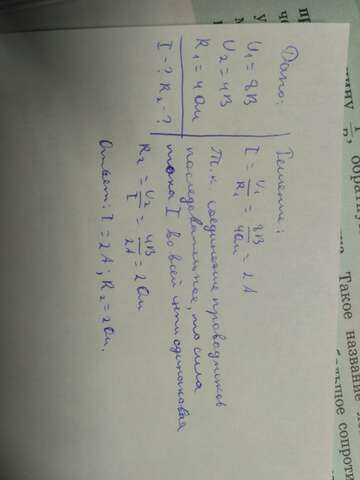 Дано:
U₁ = 8В
U₂ = 4В
R₁ = 4Ом
I - ? R₂ - ?
Решение:
I = U₁/R₁ = 8В/4Ом = 2А
Т.к. соединение проводников
последовательное, то сила
тока I во всей цепи одинаковая
R₂ = U₂/I = 4В/2А = 2 Ом
Ответ: I = 2А; R₂ = 2 Ом.
Такое название
сопроти